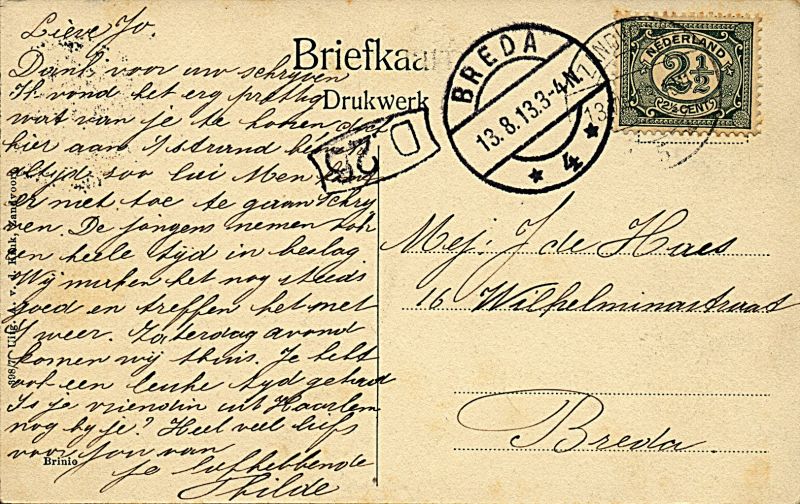 Lieve Jo.
Dank voor uw schrijven
Ik vond het erg prettig
wat van je te hooren doch
hier aan 't strand ben ik
altijd zoo lui Men
er niet toe te gaan schrij
ven. De jongens nemen ook
een heele tijd in beslag
Wij maken het nog steeds
goed en treffen het met
't weer. Zaterdag avond
komen wij thuis. Je hebt
ook een leuke tijd gehad
Is je vriendin uit Haarlem
nog bij je? Heel veel liefs
voor jou van
je liefhebbende
Thilde
Briefkaart
Drukwerk
BREDA
13.8.13.3-4N.
4
NEDERLAND
2½
2½ CENT
D
23
Mej: J de Haes
16 Wilhelminastraat
Breda.
398/7 Uitg. A. v. d. Zandvoort
Brinio